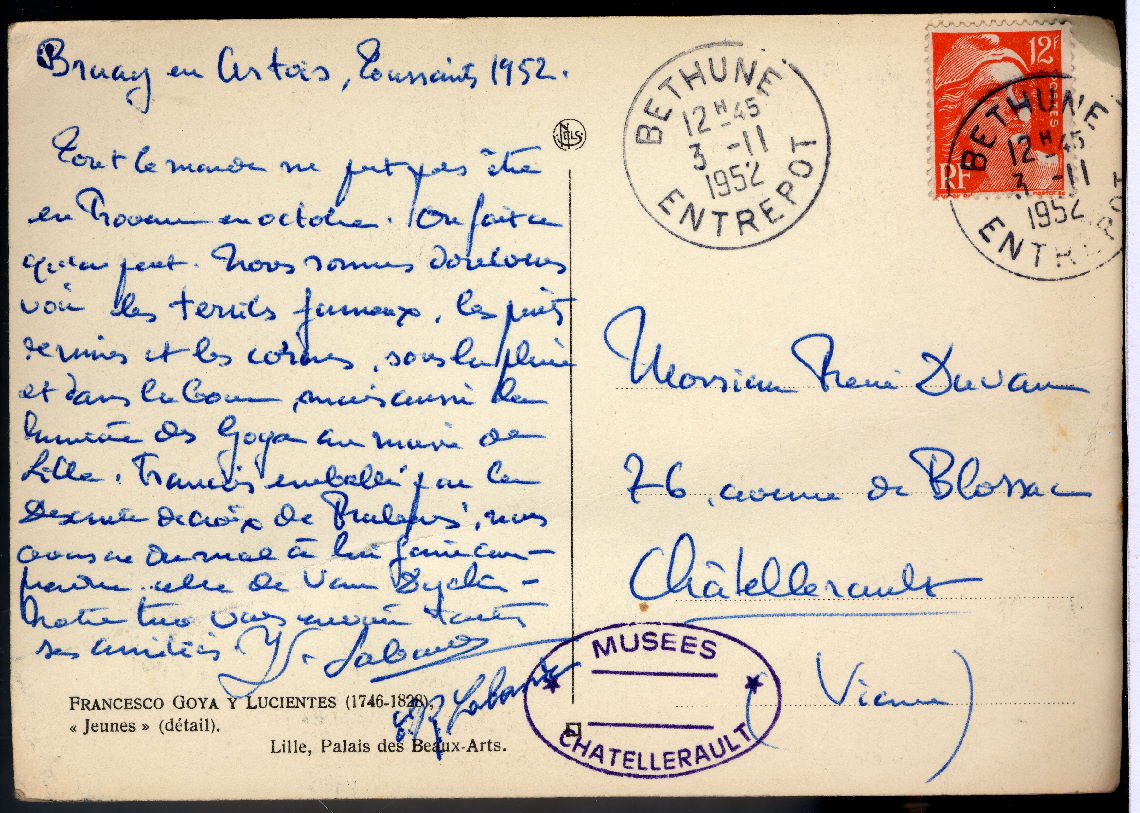 Bruay en Artois, Toussaints 1952.
Tout le monde ne peut pas être
en Provence en octobre. On fait ce
qu'on peut. Nous sommes
voir les terrils fumeux, les puits
de mines et les corons, sous la pluie
et dans la boue, mais aussi la
lumière des Goya au musée de
Lille. Francis emballé par la
Descente de croix de Rubens, nous
avons eu du mal à lui faire com-
prendre celle de Van Dyck -
Notre trio vous envoie toutes
ses amitiés. Y. Labande
Labande
FRANCESCO GOYA Y LUCIENTES (1746-1828).
« Jeunes » (détail).
Lille, Palais des Beaux-Arts.
NELS
BETHUNE
12H-45
3 -11
1952
ENTREPOT
12F
POSTES
RF
BETHUNE
12H-45
3 -11
1952
ENTREPOT
Monsieur René
76, avenue de Blossac
Châtellerault
(Vienne)
MUSEES
CHATELLERAULT